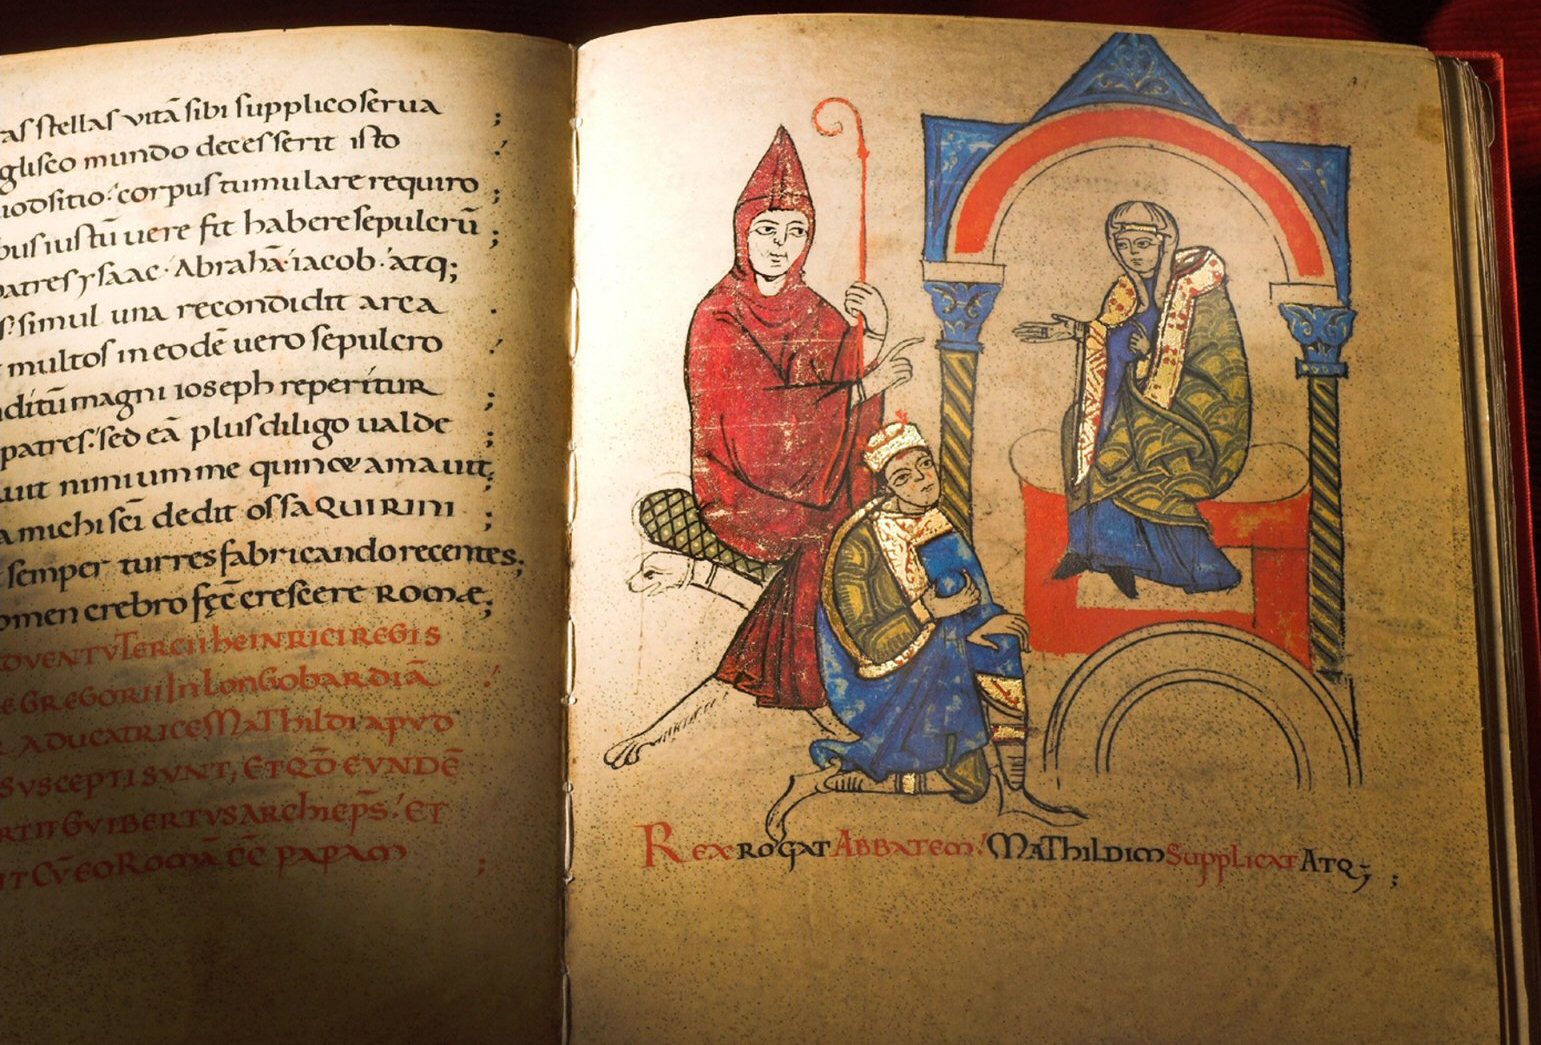 as stellas vitā sibi supplico serua ;
glisco mundo decesserit isto
iodsitio corpus tumulare requiro ;
bus iustū uere fit habere sepulcrū ;
patres ysaac · Abrahā iacob · atq;
simul una recondidit arca .
multos in eodē uero sepulcro
ditū magni ioseph reperitur ;
patres . sed eā plus diligo ualde ;
uit nimium me quinque amauit ;
michi sci dedit ossa QUIRINI ;
semper turres fabricando recentes ;
omen crebro fecē crescere ROME ;
DVENTV Tercii heinrici REGIS
E GREGORII In LonGobardiā
ADUCATRICE MaThildi apud
SVSCEPTI SVNT, ET QD EVNDĒ
GVIBERTVS ARchiepS . ET
IT CV EO Romā CC PAPAM ;
Rex rogat Abbatem . MaThildim Supplicat Atq; ;